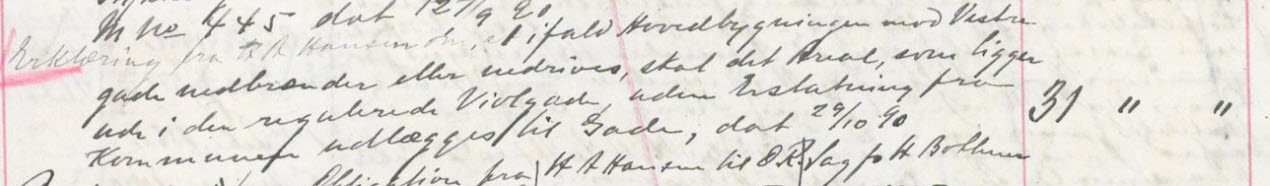 M No 445 dat 127/9 90
Erklæring fra H A Hansen om, at ifald Hovedbygningen mod Vestre
gade nedbrænder eller nedrives, skal det Areal, som ligger
ude i den regulerede Violgade, uden Erstatning fra
Kommunen udlægges til Gade, dat 29/10 90 31 " "
Obligation fra H A Hansen til Sagf H Bothner